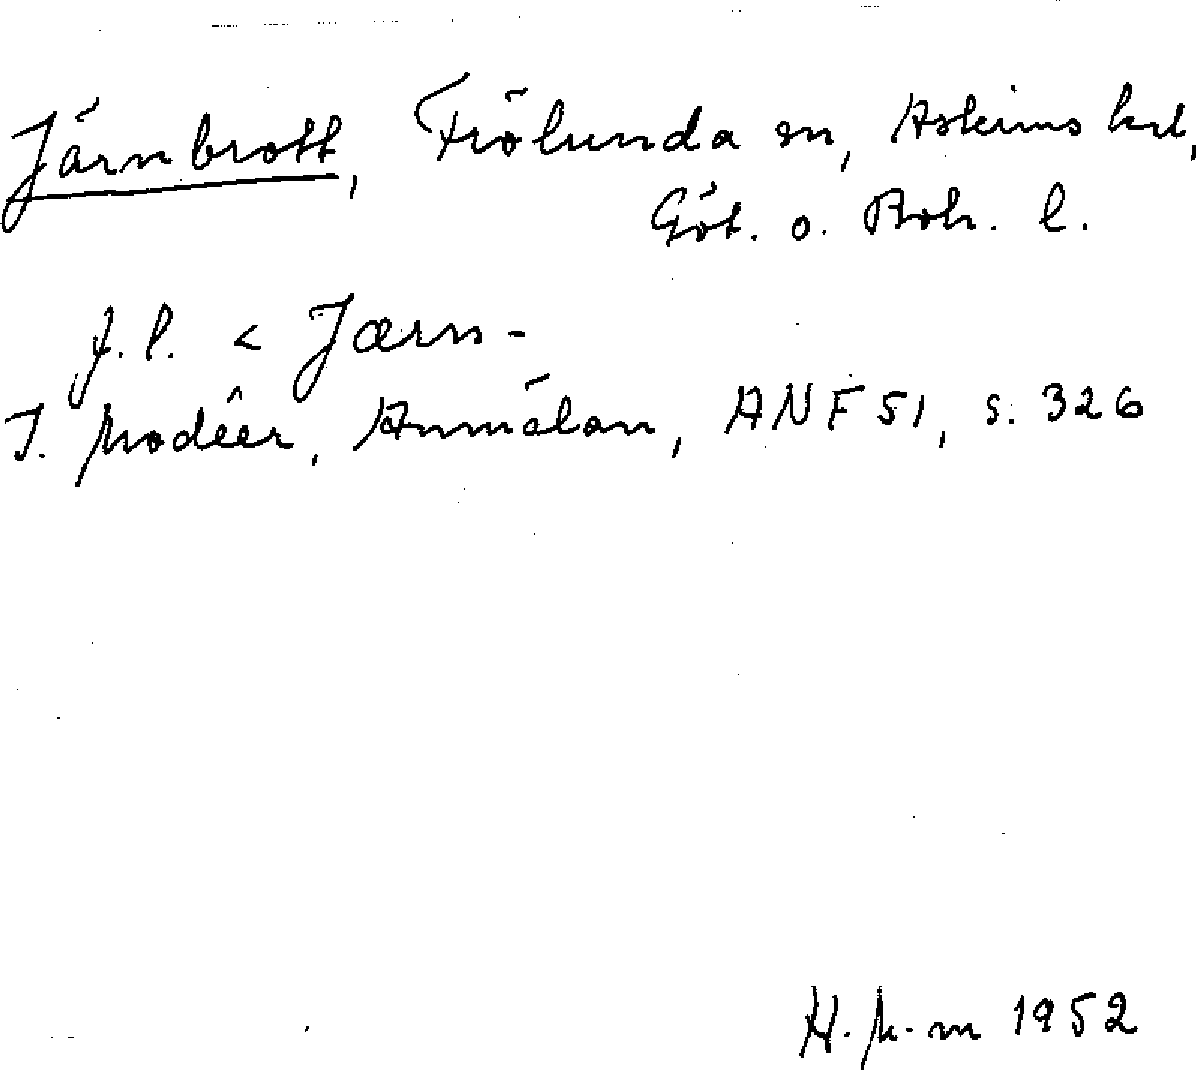 Järnbrott, Frölunda sn, Askims hd,
Göt. o. Boh. l.
f. l. < Jærn-
I. Modéer, Anmälan, ANF 51, s. 326
H. k-m 1952